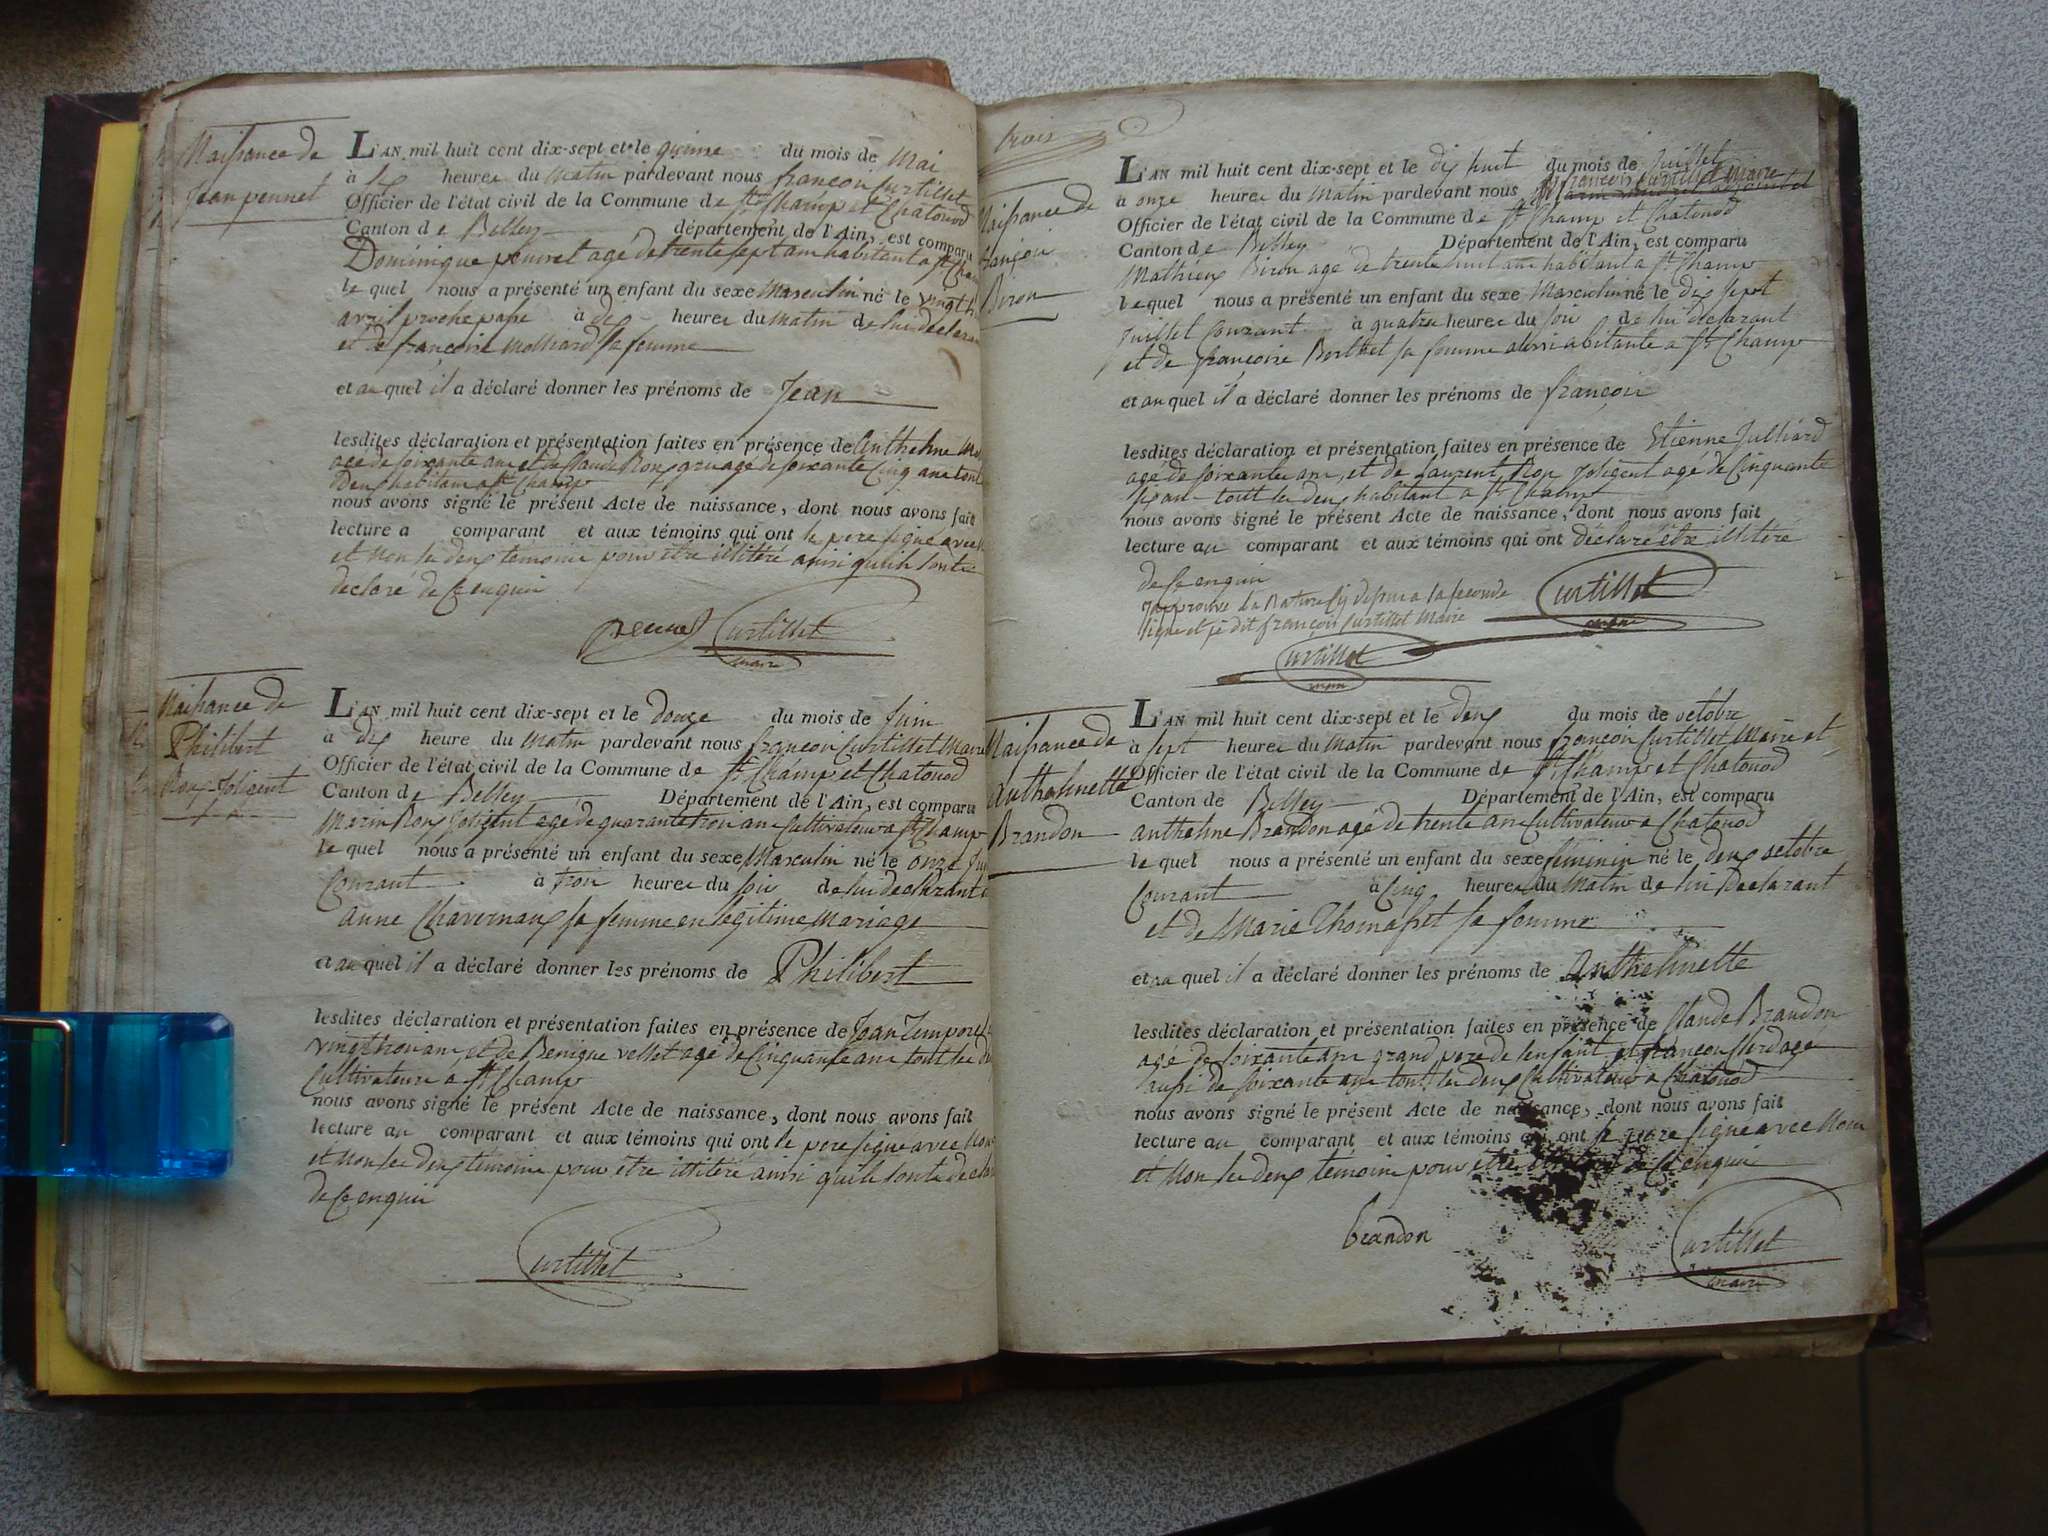 Naissance de
Jean pennet
L'AN mil huit cent dix-sept et le quinze du mois de Mai
à heures du Matin pardevant nous françois Curtillet
Officier de l'état civil de la Commune de St Champ et Chatonod
Canton de Belley département de l'Ain, est comparu
Dominique agé de trente sept ans habitant a St Cham
le quel nous a présenté un enfant du sexe Masculin né le vingt
avril proche passé à heures du Matin de lui declaran
et de françoise Molliard sa femme
et au quel il a déclaré donner les prénoms de Jean
lesdites déclaration et présentation faites en présence de Anthelme
age de soixante ans et de Claude Roux agé de soixante cinq ans tout
deux habitant a St Champ
nous avons signé le présent Acte de naissance, dont nous avons fait
lecture a comparant et aux témoins qui ont le pere signé avec
et non les deux temoins pour être illitéré ainsi qu'ils l'ont
declaré de ce enquis
pennet Curtillet
maire
Naissance de
Philibert
Roux Joliant
L'AN mil huit cent dix-sept et le douze du mois de Juin
à dix heure du Matin pardevant nous françois Curtillet Maire
Officier de l'état civil de la Commune de St Champ et Chatonod
Canton de Belley Département de l'Ain, est comparu
Marin Roux agé de quarante trois ans Cultivateur a St Champ
le quel nous a présenté un enfant du sexe Masculin né le onze
Courant à trois heures du soir de lui declarant
anne Chavernaux sa femme en legitime Mariage
et au quel il a déclaré donner les prénoms de Philibert
lesdites déclaration et présentation faites en présence de Jean
vingt trois ans et de Benigne vellet agé de Cinquante ans tout les
Cultivateurs a St Champ
nous avons signé le présent Acte de naissance, dont nous avons fait
lecture au comparant et aux témoins qui ont le pere signé avec Nous
et non les deux témoins pour être illitéré ainsi qu'ils l'ont declaré
de ce enquis
Curtillet
trois
Naissance de
françois
Biron
L'AN mil huit cent dix-sept et le dix huit du mois de Juillet
à onze heures du Matin pardevant nous françois Curtillet Maire
Officier de l'état civil de la Commune de St Champ et Chatonod
Canton de Belley Département de l'Ain, est comparu
Mathieu Biron agé de trente huit ans habitant a St Champ
le quel nous a présenté un enfant du sexe Masculin né le dix sept
Juillet Courant à quatre heures du soir de lui declarant
et de françoise Berthet sa femme aussi abitante a St Champ
et au quel il a déclaré donner les prénoms de françois
lesdites déclaration et présentation faites en présence de Etienne Julliard
age de soixante ans, et de Laurent Roux agé de Cinquante
six ans tout les deux habitant a St Champ
nous avons signé le présent Acte de naissance, dont nous avons fait
lecture au comparant et aux témoins qui ont déclaré être illitéré
de ce enquis
J'approuve la Rature cy dessu a la seconde
ligne et je dit françois Curtillet Maire
Curtillet
maire
Curtillet
maire
Naissance de
Anthelmette
Brandon
L'AN mil huit cent dix-sept et le deux du mois de octobre
à sept heures du Matin pardevant nous françois Curtillet Maire et
Officier de l'état civil de la Commune de St Champ et Chatonod
Canton de Belley Département de l'Ain, est comparu
anthelme Brandon agé de trente ans Cultivateur a Chatonod
le quel nous a présenté un enfant du sexe féminin né le deux octobre
Courant à Cinq heures du Matin de lui Declarant
et de Marie Thomasset sa femme
et au quel il a déclaré donner les prénoms de Anthelmette
lesdites déclaration et présentation faites en présence de Claude Brandon
age de soixante ans grand pere de l'enfant et françois
aussi de soixante ans tout les deux Cultivateur a Chatonod
nous avons signé le présent Acte de naissance, dont nous avons fait
lecture au comparant et aux témoins qui ont le pere signé avec Nous
et Non les deux témoins pour être de ce enquis
brandon
Curtillet
maire